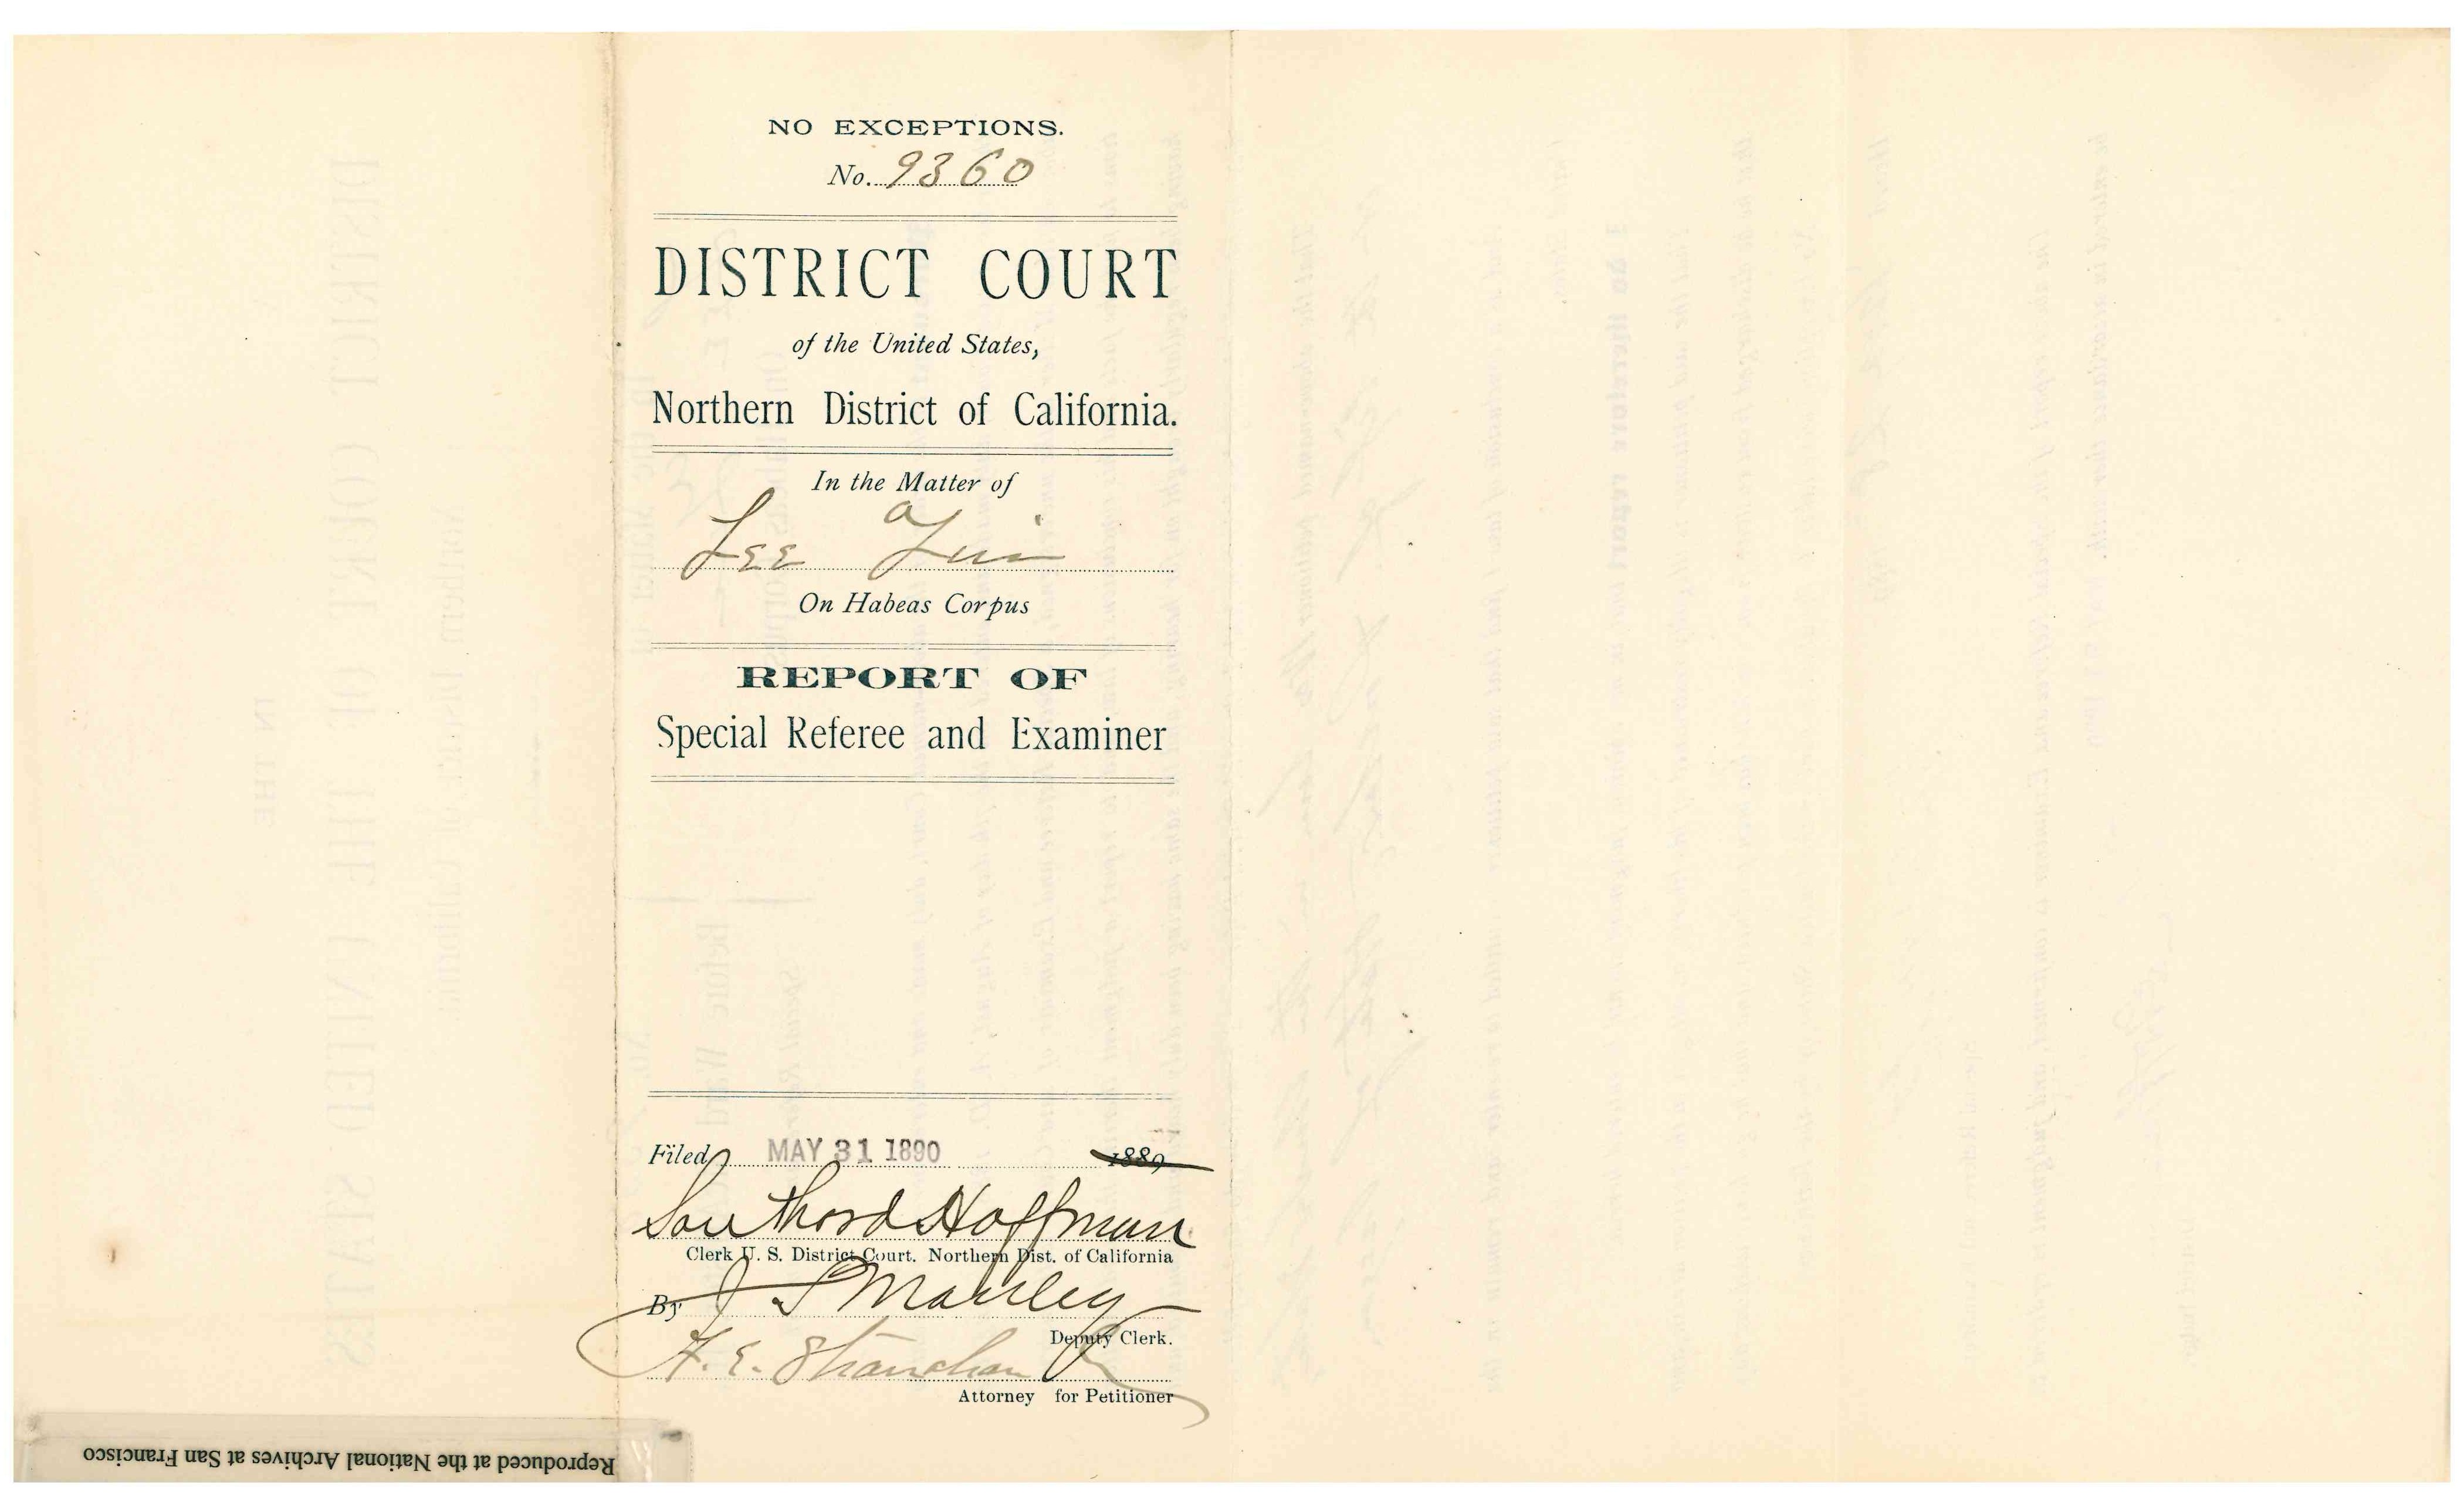 NO EXCEPTIONS.
No. 9360
DISTRICT COURT
of the United States,
Northern District of California.
In the Matter of
Lee
On Habeas Corpus
REPORT OF
Special Referee and Examiner
Filed MAY 31 1890 1889
Southard Hoffman
Clerk U. S. District Court. Northern Dist. of California
By J S Manley
Deputy Clerk.
Attorney for Petitioner
Reproduced at the National Archives at San Francisco